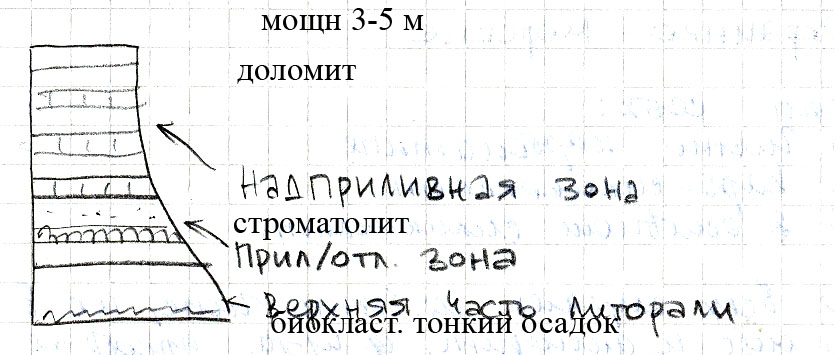 мощн 3-5 м
доломит
Надприливная зона
строматолит
Прил/отл. зона
Верхняя часть литорали
биокласт. тонкий осадок